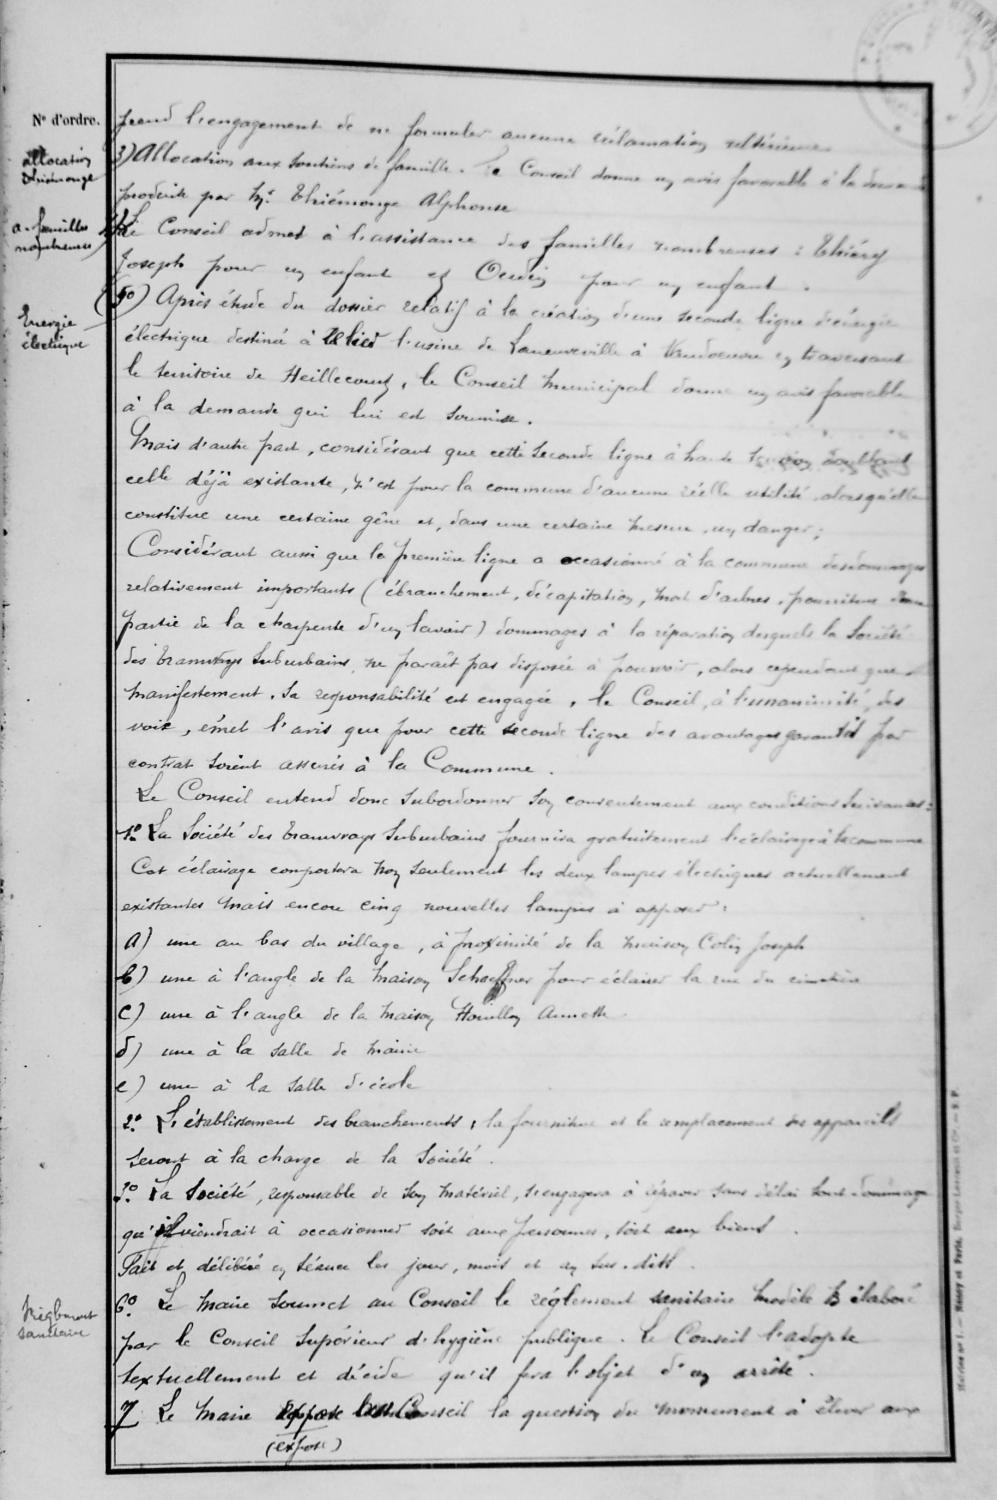 N° d'ordre.
prend l'engagement de ne formuler aucune réclamation ultérieure
allocation
Thiémonge
3) Allocation aux soutiens de famille. Le Conseil donne un avis favorable à la demande
produite par Mr. Thiémonge Alphonse
a. familles
nombreuses
Le Conseil admet à l'assistance des familles nombreuses : Thiéry
Joseph pour un enfant et Oudin pour un enfant.
Energie
électrique
(5°) Après étude du dossier relatif à la création d'une seconde ligne d'énergie
électrique destiné à relier l'usine de Laneuveville à Vandoeuvre en traversant
le territoire de Heillecourt, le Conseil Municipal donne un avis favorable
à la demande qui lui est soumise.
Mais d'autre part, considérant que cette seconde ligne à haute tension doublant
celle déjà existante, n'est pour la commune d'aucune réelle utilité alors qu'elle
constitue une certaine gêne et, dans une certaine mesure, un danger ;
Considérant aussi que la première ligne a occasionné à la commune des dommages
relativement importants (ébranchement, décapitation, mort d'arbres, pourriture d'une
partie de la charpente d'un lavoir) dommages à la réparation desquels la Société
des Tramways Suburbains ne paraît pas disposée à pourvoir, alors cependant que
manifestement, sa responsabilité est engagée, le Conseil, à l'unanimité des
voix, émet l'avis que pour cette seconde ligne des avantages garantis par
contrat soient assurés à la Commune.
Le Conseil entend donc subordonner son consentement aux conditions suivantes :
1° La Société des Tramways Suburbains fournira gratuitement l'éclairage à la commune
Cet éclairage comportera non seulement les deux lampes électriques actuellement
existantes mais encore cinq nouvelles lampes à apposer :
a) une au bas du village, à proximité de la maison Colin Joseph
b) une à l'angle de la maison Schaeffner pour éclairer la rue du cimetière
c) une à l'angle de la maison Houillon Annette
d) une à la salle de mairie
e) une à la salle d'école
2° L'établissement des branchements, la fourniture et le remplacement des appareils
seront à la charge de la Société.
3° La Société, responsable de son matériel, s'engagera à réparer sans délai tout dommage
qu'il viendrait à occasionner soit aux personnes, soit aux biens.
Fait et délibéré en séance les jour, mois et an sus-dits.
Règlement
sanitaire
6° Le Maire soumet au Conseil le règlement sanitaire modèle B élaboré
par le Conseil Supérieur d'hygiène publique. Le Conseil l'adopte
textuellement et décide qu'il fera l'objet d'un arrêté.
7 Le Maire expose au Conseil la question du monument à élever aux
(expose)